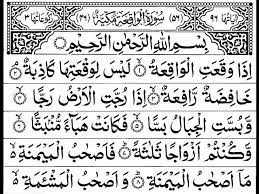 اٰيَاتُهَا ٩٦ سُوْرَةُ الْوَاقِعَةِ مَكِّيَّةٌ رُكُوْعَاتُهَا ٣
بِسْمِ اللهِ الرَّحْمٰنِ الرَّحِيْمِ
اِذَا وَقَعَتِ الْوَاقِعَةُ ۝١ لَيْسَ لِوَقْعَتِهَا كَاذِبَةٌ ۝٢
خَافِضَةٌ رَّافِعَةٌ ۝٣ اِذَا رُجَّتِ الْاَرْضُ رَجًّا ۝٤
وَّبُسَّتِ الْجِبَالُ بَسًّا ۝٥ فَكَانَتْ هَبَآءً مُّنْۢبَثًّا ۝٦
وَّكُنْتُمْ اَزْوَاجًا ثَلٰثَةً ۝٧ فَاَصْحٰبُ الْمَيْمَنَةِ
مَآ اَصْحٰبُ الْمَيْمَنَةِ ۝٨ وَ اَصْحٰبُ الْمَشْـَٔمَةِ